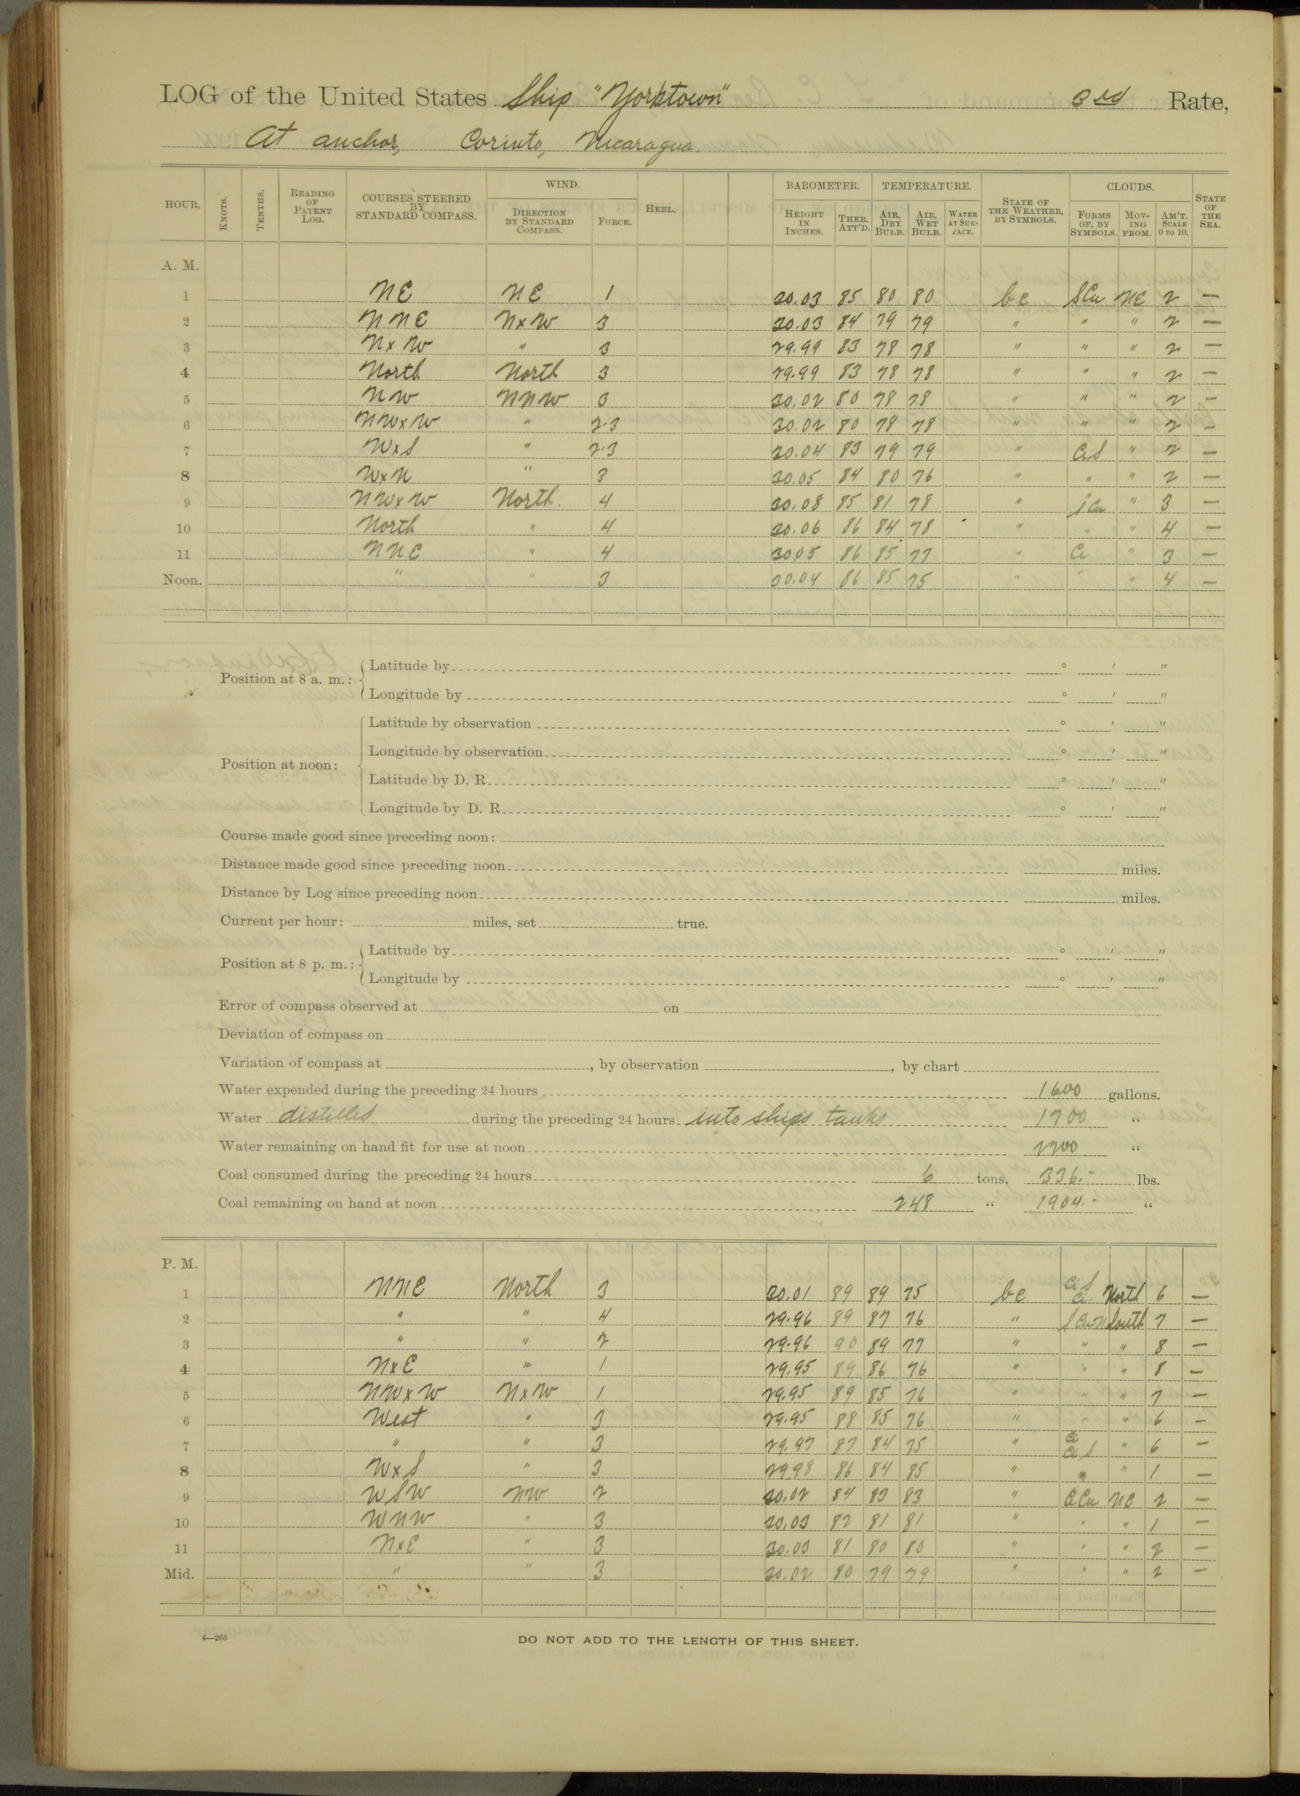 LOG of the United States Ship "Yorktown" 3rd Rate,
At anchor, Corinto, Nicaragua.
HOUR. KNOTS. TENTHS. READING OF PATENT LOG. COURSES STEERED BY STANDARD COMPASS. WIND. DIRECTION BY STANDARD COMPASS. FORCE. HEEL. BAROMETER. HEIGHT IN INCHES. THER. ATT'D. TEMPERATURE. AIR, DRY BULB. AIR, WET BULB. WATER AT SUR-FACE. STATE OF THE WEATHER, BY SYMBOLS. CLOUDS. FORMS OF, BY SYMBOLS. MOV-ING FROM. AM'T. SCALE 0 TO 10. STATE OF THE SEA.
A. M.
1 NE NE 1 30.03 85 80 80 bc SCu NE 2 —
2 NNE NxW 3 30.03 84 79 79 " " " 2 —
3 NxW " 3 29.99 83 78 78 " " " 2 —
4 North North 3 29.99 83 78 78 " " " 2 —
5 NW NNW 3 30.02 80 78 78 " " " 2 —
6 NWxW " 2-3 30.02 80 78 78 " " " 2 —
7 WxS " 2-3 30.04 83 79 79 " CiS " 2 —
8 WxN " 3 30.05 84 80 76 " " " 2 —
9 NWxW North 4 30.08 85 81 78 " " 3 —
10 North " 4 30.06 86 84 78 " " 4 —
11 NNE " 4 30.05 86 85 77 " Ci " 3 —
Noon. " " 3 30.04 86 85 75 " " " 4 —
Position at 8 a. m.: Latitude by ° ' "
Longitude by ° ' "
Position at noon: Latitude by observation ° ' "
Longitude by observation ° ' "
Latitude by D. R. ° ' "
Longitude by D. R. ° ' "
Course made good since preceding noon:
Distance made good since preceding noon miles.
Distance by Log since preceding noon miles.
Current per hour: miles, set true.
Position at 8 p. m.: Latitude by ° ' "
Longitude by ° ' "
Error of compass observed at on
Deviation of compass on
Variation of compass at , by observation , by chart
Water expended during the preceding 24 hours 1600 gallons.
Water distilled during the preceding 24 hours into ships tanks 1700 "
Water remaining on hand fit for use at noon 2200 "
Coal consumed during the preceding 24 hours 6 tons, 336.- lbs.
Coal remaining on hand at noon 248 " 1904.- "
P. M.
1 NNE North 3 30.01 89 89 75 bc CiS Ci North 6 —
2 " " 4 29.96 89 87 76 " South 7 —
3 " " 2 29.96 90 89 77 " " " 8 —
4 NxE " 1 29.95 89 86 76 " " " 8 —
5 NWxW NxW 1 29.95 89 85 76 " " " 7 —
6 West " 3 29.95 88 85 76 " " " 6 —
7 " " 3 29.97 87 84 75 " Ci CiS " 6 —
8 WxS " 3 29.98 86 84 85 " " " 1 —
9 WSW NW 2 30.02 84 83 83 " CiCu NE 2 —
10 WNW " 3 30.03 82 81 81 " " " 1 —
11 NxE " 3 30.03 81 80 80 " " " 2 —
Mid. " " 3 30.02 80 79 79 " " " 2 —
4—265
DO NOT ADD TO THE LENGTH OF THIS SHEET.